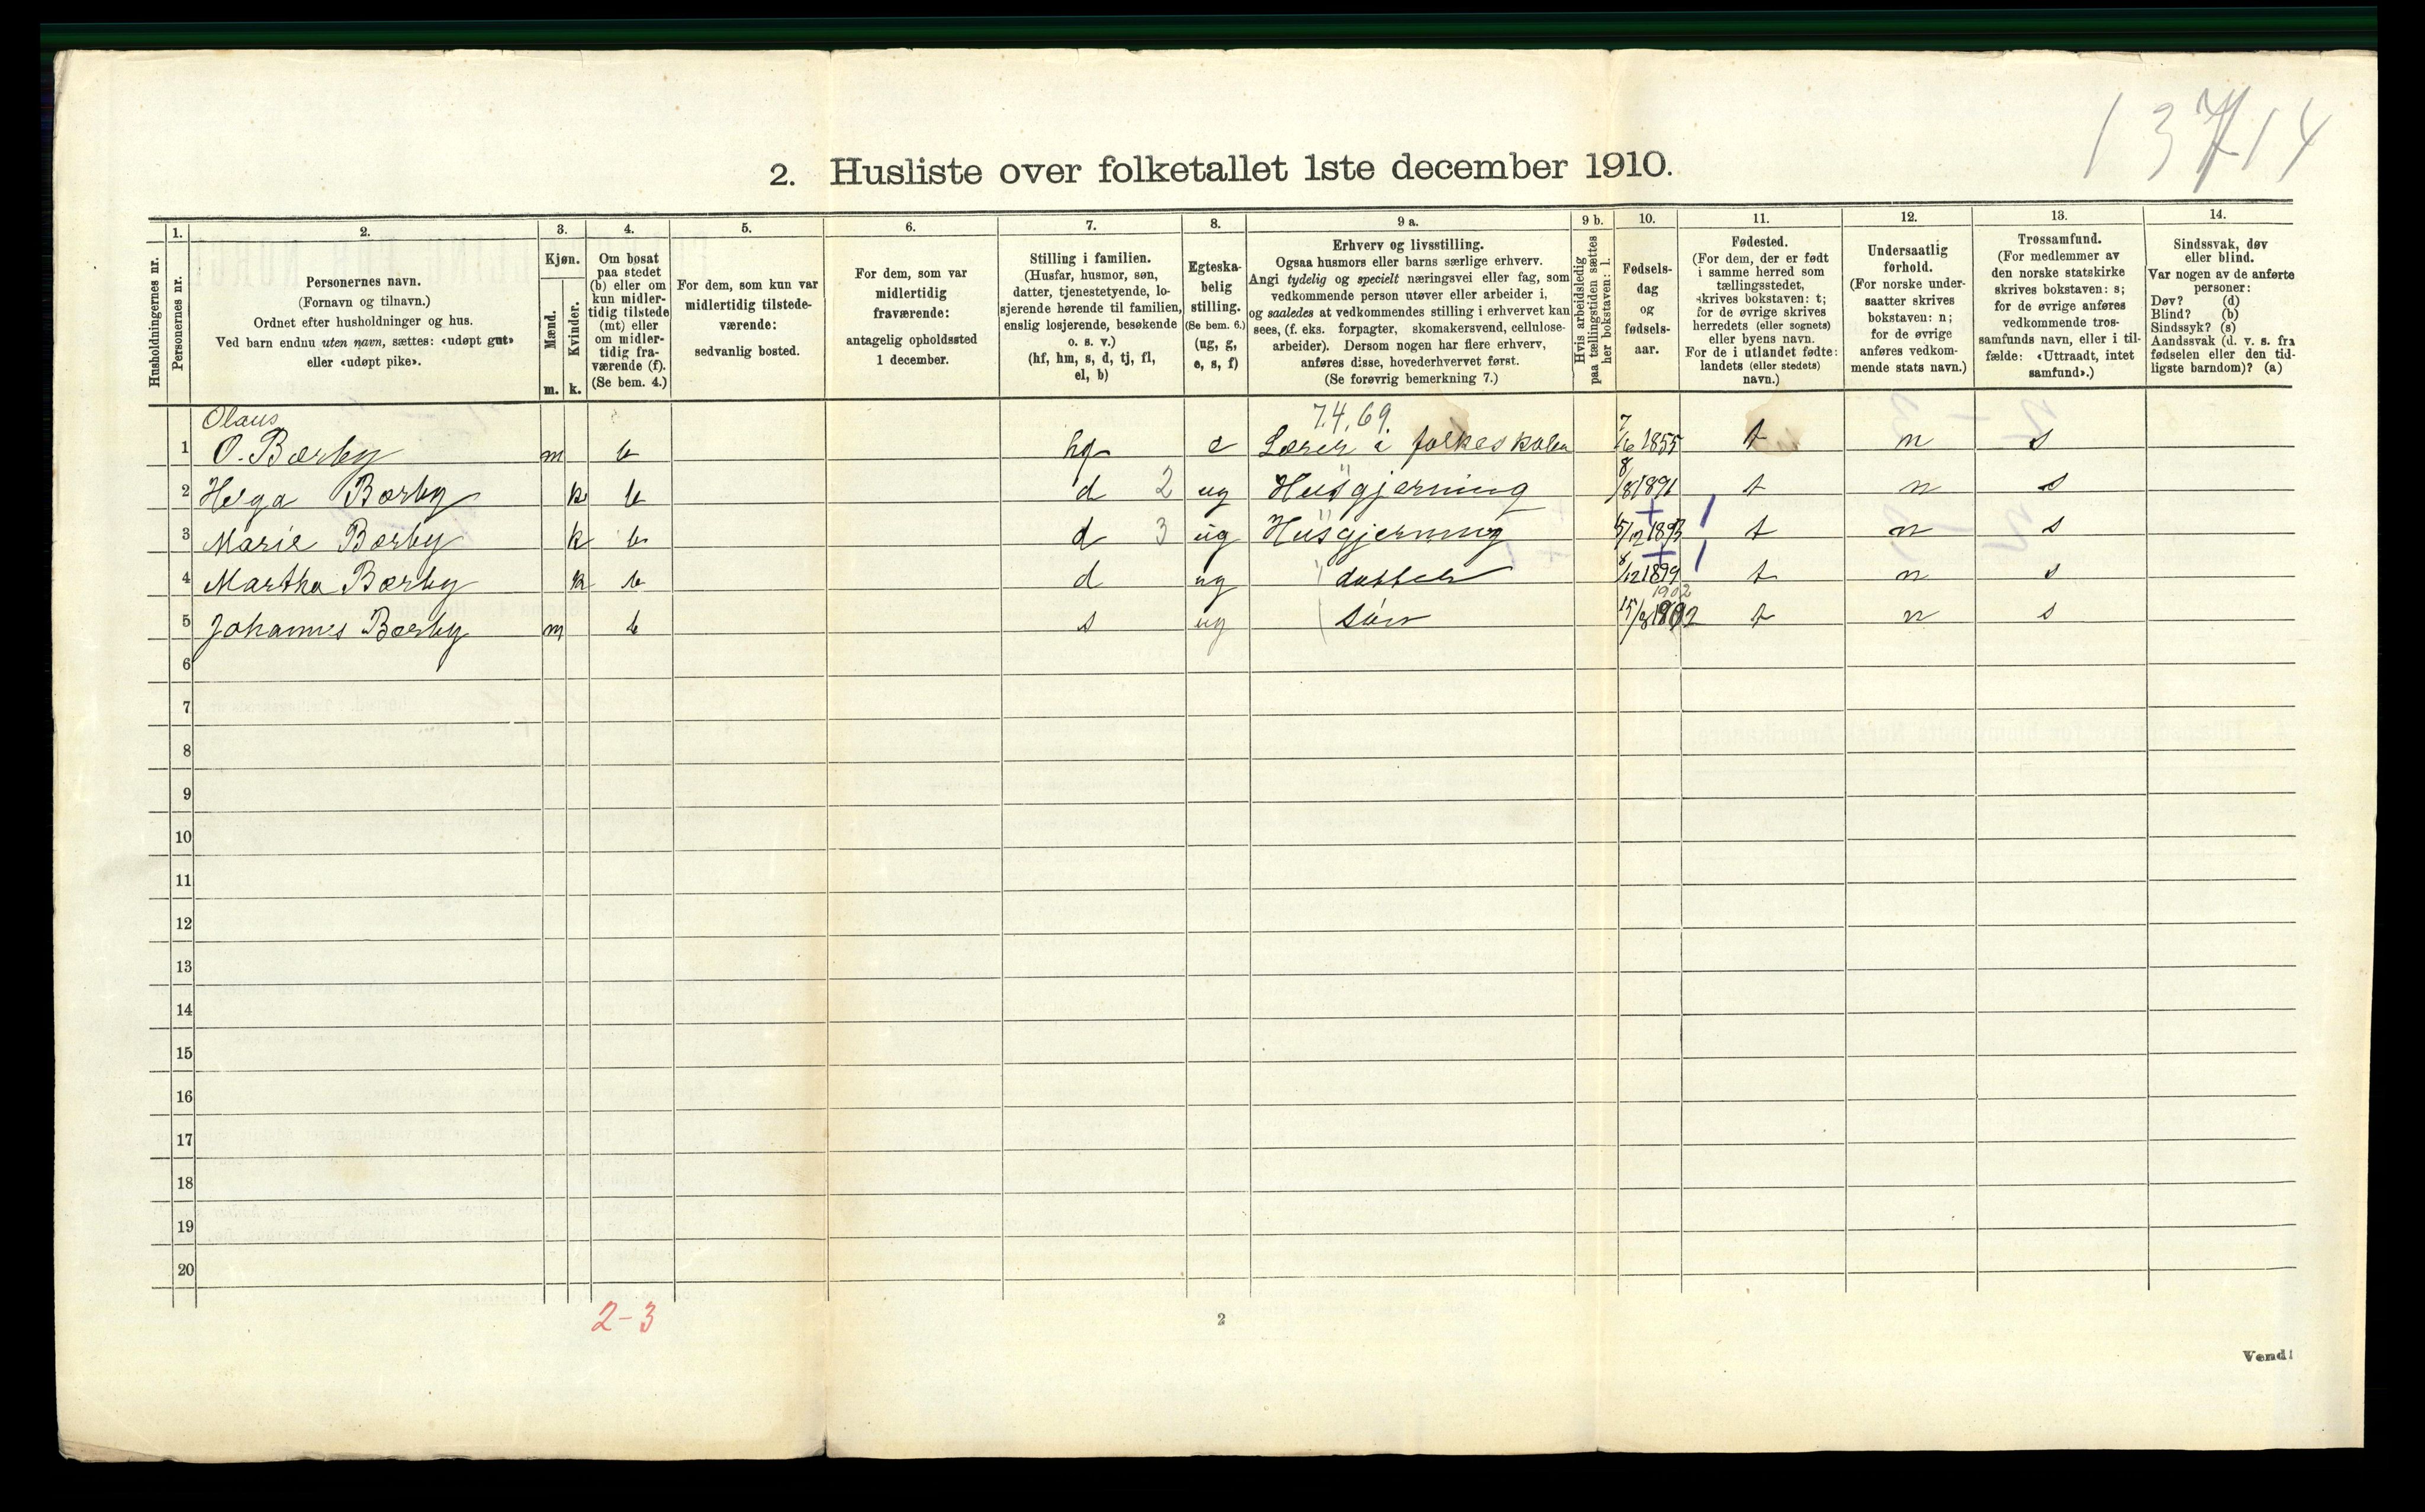 13714
2. Husliste over folketallet 1ste december 1910.
1. 2. 3. 4. 5. 6. 7. 8. 9 a. 9 b. 10. 11. 12. 13. 14.
Husholdningernes nr.
Personernes nr.
Personernes navn.
(Fornavn og tilnavn.)
Ordnet efter husholdninger og hus.
Ved barn endnu uten navn, sættes: «udøpt gut»
eller «udøpt pike».
Kjøn.
Mænd.
Kvinder.
m. k.
Om bosat
paa stedet
(b) eller om
kun midler-
tidig tilstede
(mt) eller
om midler-
tidig fra-
værende (f).
(Se bem. 4.)
For dem, som kun var
midlertidig tilstede-
værende:
sedvanlig bosted.
For dem, som var
midlertidig
fraværende:
antagelig opholdssted
1 december.
Stilling i familien.
(Husfar, husmor, søn,
datter, tjenestetyende, lo-
sjerende hørende til familien,
enslig losjerende, besøkende
o. s. v.)
(hf, hm, s, d, tj, fl,
el, b)
Egteska-
belig
stilling.
(Se bem. 6.)
(ug, g,
e, s, f)
Erhverv og livsstilling.
Ogsaa husmors eller barns særlige erhverv.
Angi tydelig og specielt næringsvei eller fag, som
vedkommende person utøver eller arbeider i,
og saaledes at vedkommendes stilling i erhvervet kan
sees, (f. eks. forpagter, skomakersvend, cellulose-
arbeider). Dersom nogen har flere erhverv,
anføres disse, hovederhvervet først.
(Se forøvrig bemerkning 7.)
Hvis arbeidsledig
paa tællingstiden sættes
her bokstaven: l.
Fødsels-
dag
og
fødsels-
aar.
Fødested.
(For dem, der er født
i samme herred som
tællingsstedet,
skrives bokstaven: t;
for de øvrige skrives
herredets (eller sognets)
eller byens navn.
For de i utlandet fødte:
landets (eller stedets)
navn.)
Undersaatlig
forhold.
(For norske under-
saatter skrives
bokstaven: n;
for de øvrige
anføres vedkom-
mende stats navn.)
Trossamfund.
(For medlemmer av
den norske statskirke
skrives bokstaven: s;
for de øvrige anføres
vedkommende tros-
samfunds navn, eller i til-
fælde: «Uttraadt, intet
samfund».)
Sindssvak, døv
eller blind.
Var nogen av de anførte
personer:
Døv? (d)
Blind? (b)
Sindssyk? (s)
Aandssvak (d. v. s. fra
fødselen eller den tid-
ligste barndom)? (a)
Olaus 7.4.69.
1 O. Bærby m b hf e Lærer i folkeskolen 7/6 1855 t n s
2 Helga Bærby k b d 2 ug Husgjerning 8/8 1891 t n s
3 Marie Bærby k b d 3 ug Husgjerning 15/12 1893 t n s
4 Martha Bærby k b d ug datter 8/12 1899 t n s
1902
5 Johannes Bærby m b s ug søn 15/8 1902 t n s
6
7
8
9
10
11
12
13
14
15
16
17
18
19
20
2-3
2
Vend!